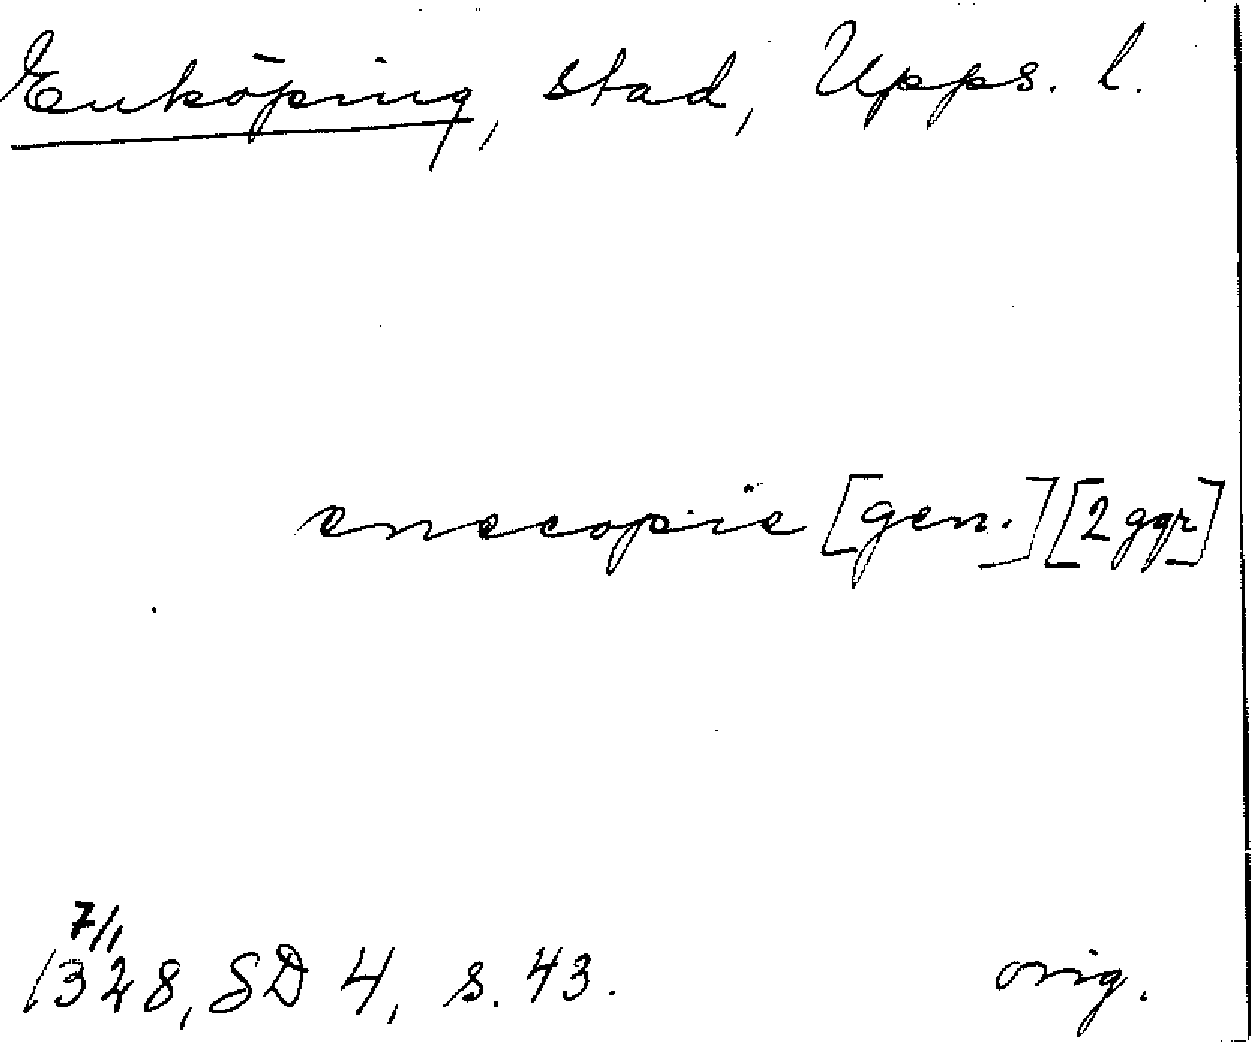 Enköping, stad, Upps. l.
enecopie [gen.] [2 ggr]
7/1
1328, SD 4, s. 43. orig.